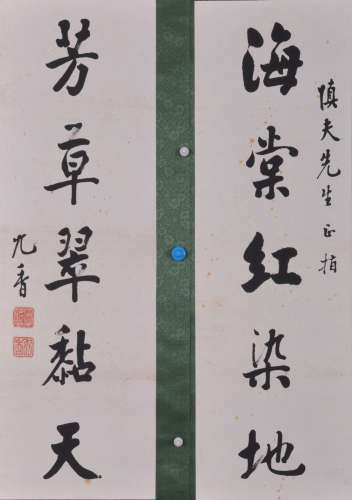 慎夫先生正指
海棠红染地
芳草翠黏天